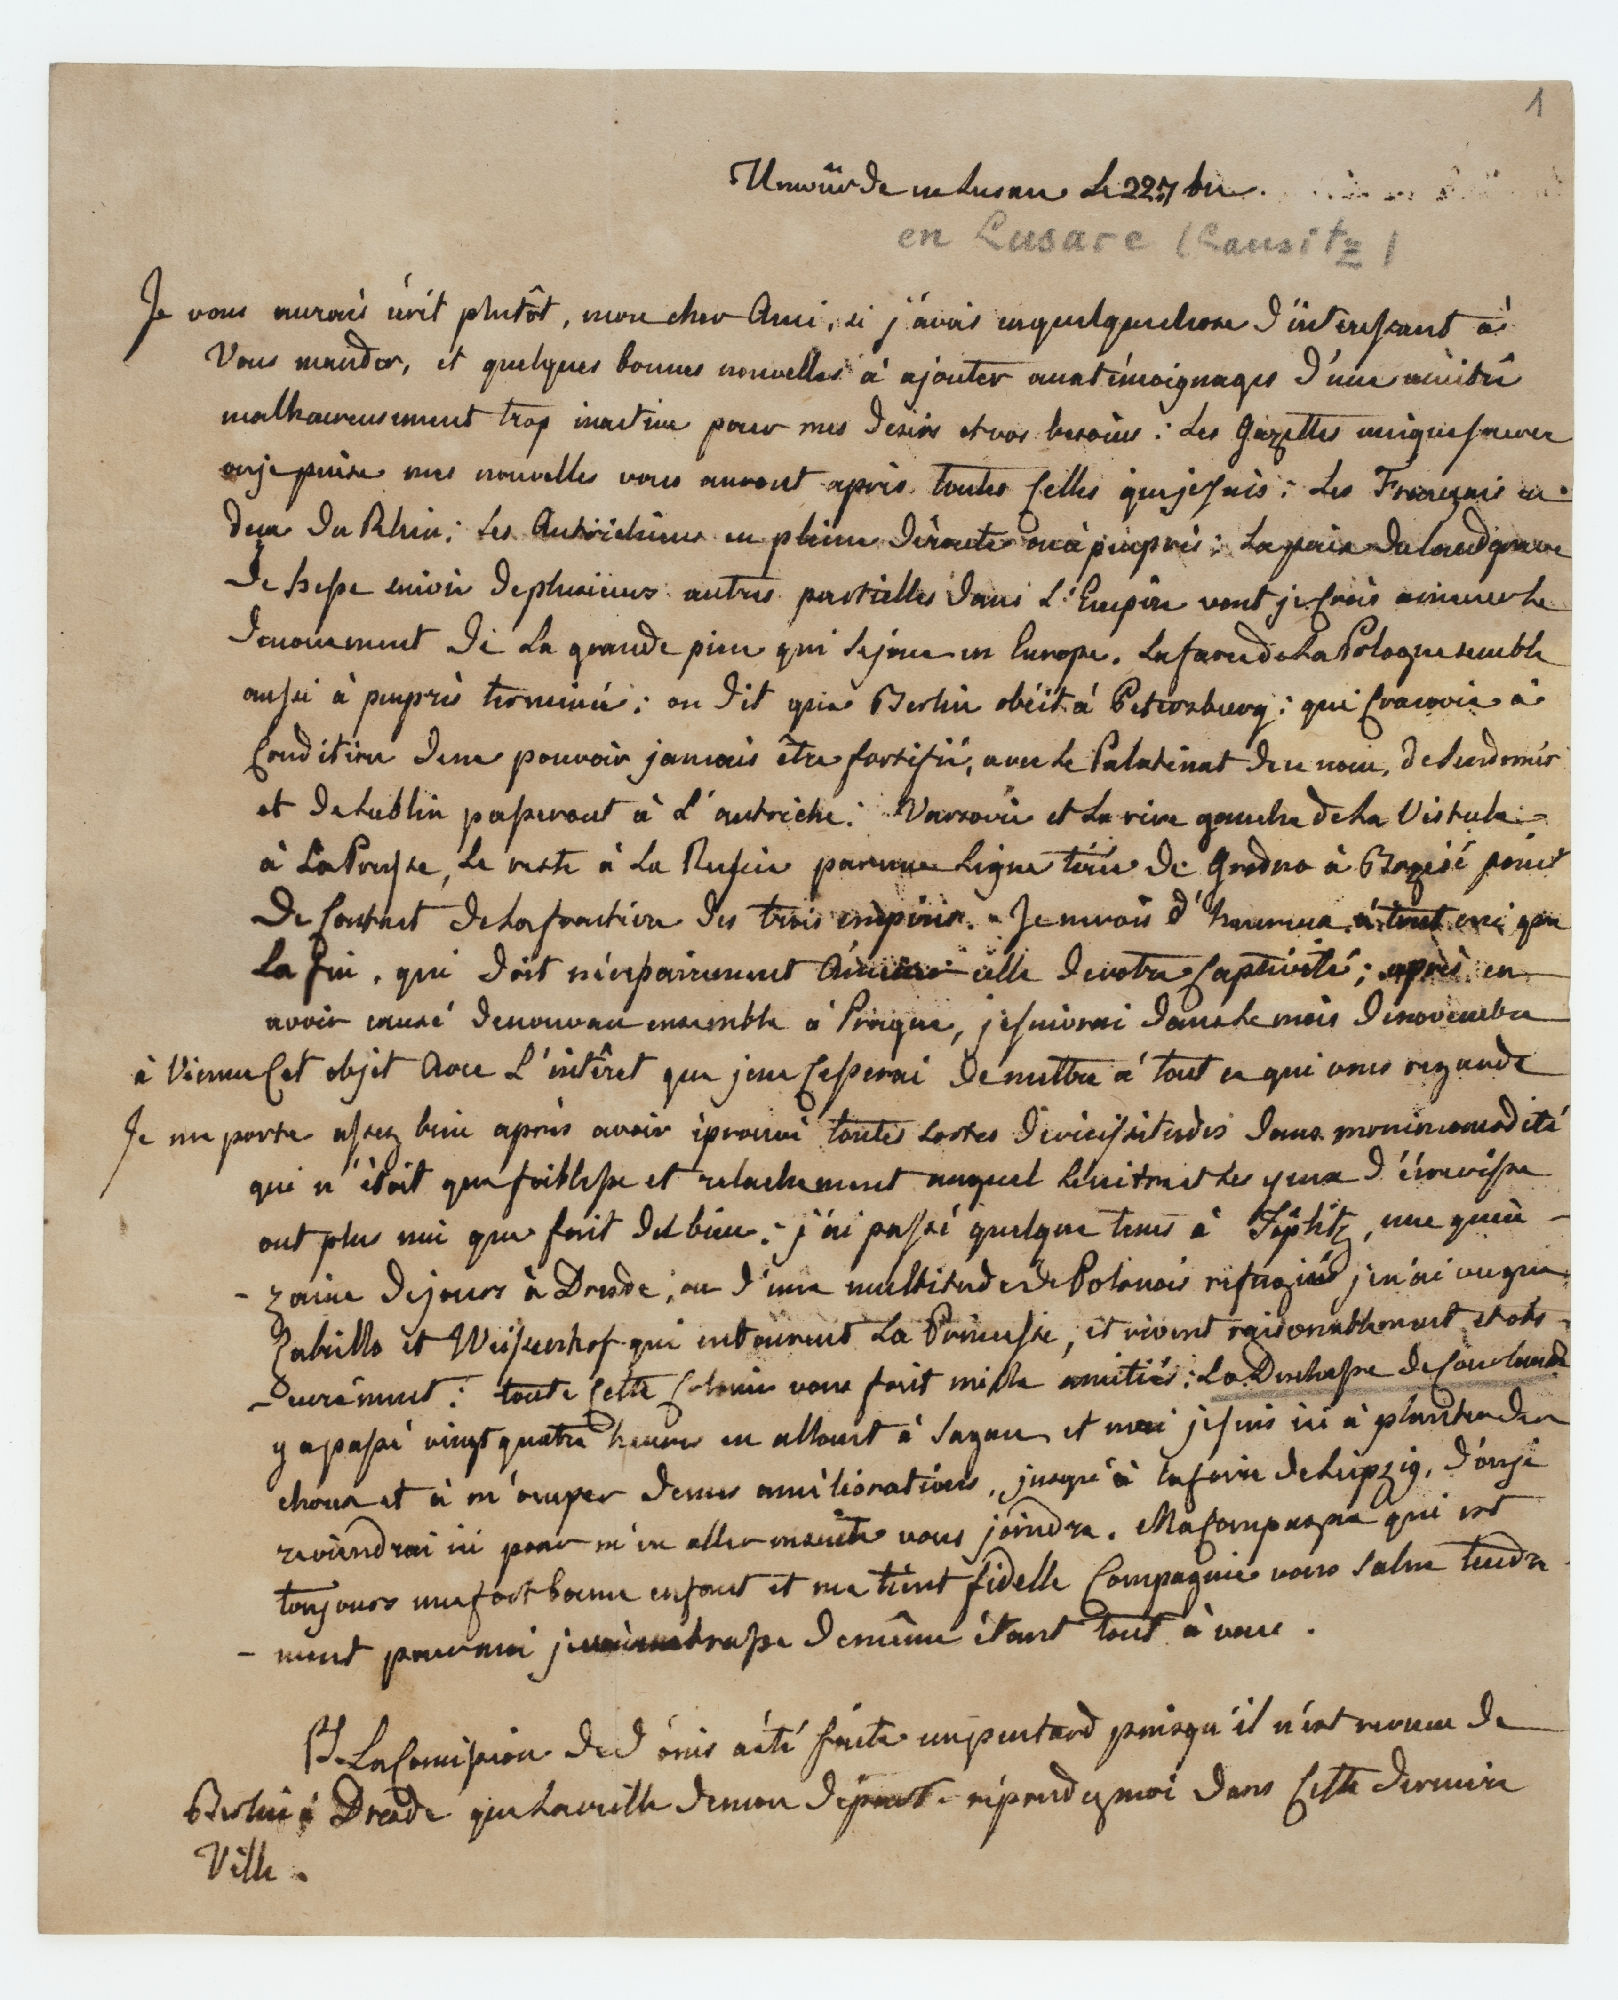 1
Unwürde en Lusace le 22 7bre.
en Lusace (Lausitz)
Je vous aurais écrit plutôt, mon cher Ami, si j'avais eu quelque chose d'intéressant à
Vous mander, et quelques bonnes nouvelles à ajouter aux témoignages d'une amitié
malheureusement trop inactive pour mes desirs et vos besoins : Les Gazettes unique source
ou je puise mes nouvelles vous auront apris toutes celles que je sais : Les Français en
deça du Rhin : Les Autrichiens en pleine déroute ou à peu près : La paix du Landgrave
de Hesse suivie de plusieurs autres partielles dans L'Empire vont je crois amener le
denouement de La grande piece qui se joue en Europe. La farce de La Pologne semble
aussi à peu près terminée : on dit que Berlin obéit à Petersburg : que Cracovie à
Condition de ne pouvoir jamais être fortifié, avec Le Palatinat de ce nom, de Sendomir
et de Lublin passeront à L'autriche : Varsovie et La rive gauche de La Vistule
à La Prusse, Le reste à La Russie par une Ligne tirée de Grodno à Brzésc point
De Contact de La frontière des trois empires. Je ne vois d'heureux à tout ceci que
La fin, qui doit nécessairement Amener celle de votre Captivité ; après en
avoir causé de nouveau ensemble à Prague, je suivrai dans le mois de novembre
à Vienne Cet objet Avec L'intêret que je ne Cesserai de mettre à tout ce qui vous regarde
Je me porte assez bien après avoir éprouvé toutes sortes de vicissitudes dans mon incomodité
qui n'étoit que foiblesse et relachement auquel Le nitre et Les yeux d'écrevisse
ont plus nui que fait du bien. j'ai passé quelque tems à Töplitz, une quin-
- zaine de jours à Dresde, ou d'une multitude de Polonais refugiés je n'ai vu que
Zabiello et Weissenhof qui entourent La Princesse, et vivent raisonablement et obs-
- Ceurément : toute Cette Colonie vous fait mille amitiés : La Duchesse de Courlande
y a passé vingt quatre heures en allant à Sagan et moi je suis ici à planter des
choux et à m'occuper de mes améliorations, jusqu'à la foire de Leipzig, d'où je
reviendrai ici pour m'en aller ensuite vous joindre. Ma Compagne qui est
toujours une fort bonne enfant et me tient fidelle Compagnie vous salue tendre
- ment pour moi je vous embrasse de même étant tout à vous.
PS. La Comission de d'Onis a été faite un peu tard puisqu'il n'est revenu de
Berlin à Dresde que La veille de mon départ. répondez moi dans Cette derniere
Ville.